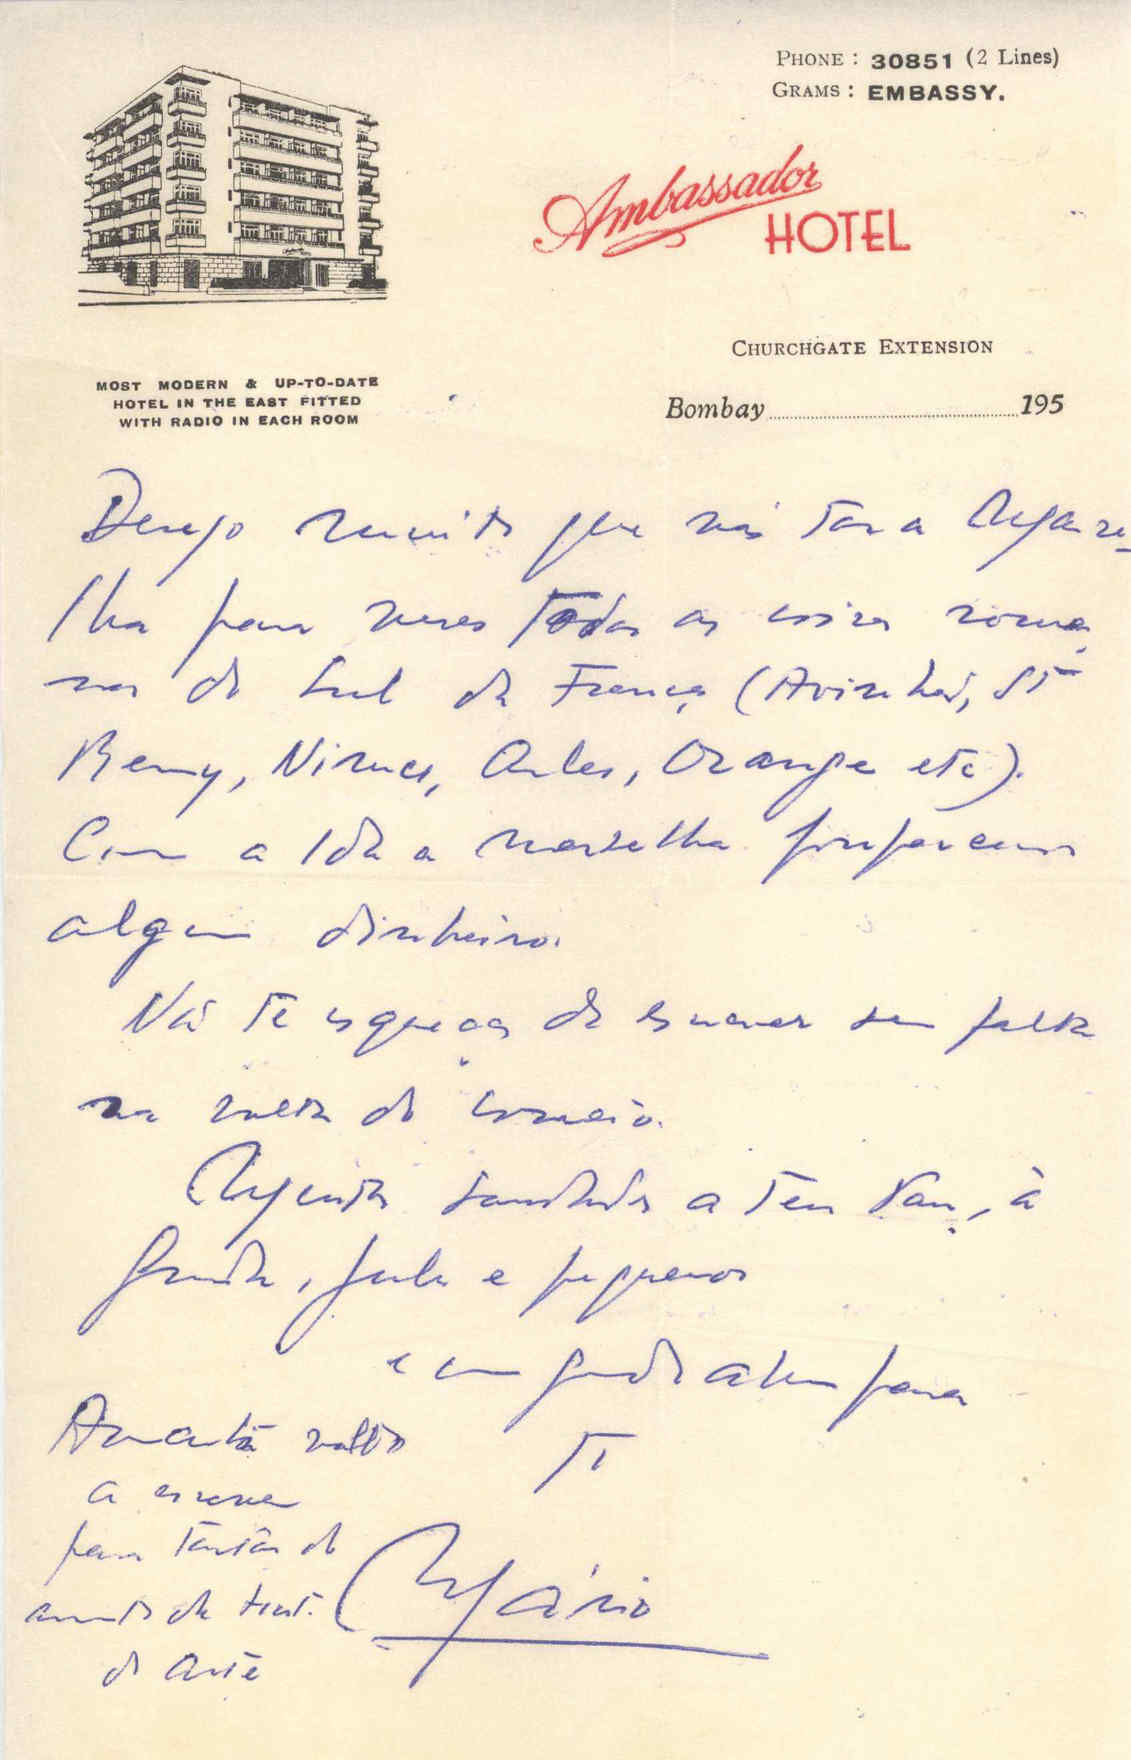 PHONE : 30851 (2 Lines)
GRAMS : EMBASSY.
Ambassador
HOTEL
CHURCHGATE EXTENSION
MOST MODERN & UP-TO-DATE
HOTEL IN THE EAST FITTED
WITH RADIO IN EACH ROOM
Bombay 195
Desejo muito que vás a Marse-
lha para veres todas as coisas roma-
nas do Sul da França (Avinhão, St
Remy, Nimes, Arles, Orange etc).
Com a ida a Marselha poupar
algum dinheiro.
Não te esqueças de escrever sem falta
na volta do correio.
Muitas saudades a teu , à
, e pequenos
e um grande abraço para
ti
Mário
Amanhã volto
a escrever
para tratar do
da Hist.
de Arte